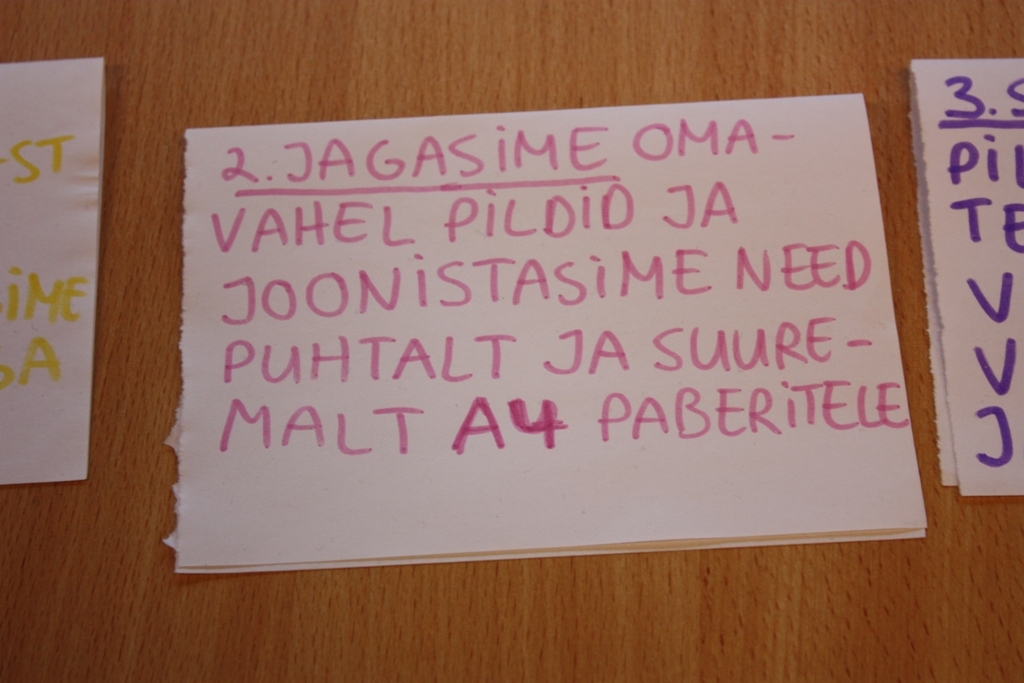 -ST
2. JAGASIME OMA-
VAHEL PILDID JA
JOONISTASIME NEED
PUHTALT JA SUURE-
MALT A4 PABERITELE
SIME
3. S
PIL
TE
V
V
J